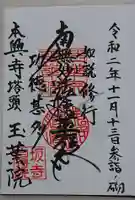 令和二年十一月十三日参詣之砌
如説修行
南無妙法蓮華経
功徳甚多
本興寺塔頭 玉葉院